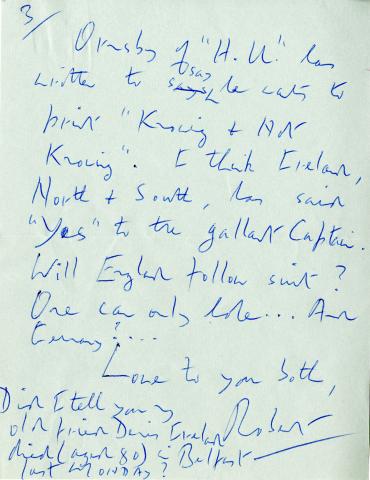 3/
Ormsby of "H.U." has
written to say he wants to
print "Knowing & Not
Knowing". I think Ireland,
North & South, has said
"Yes" to the gallant Captain.
Will England follow suit?
One can only hope... And
Germany?....
Love to you both,
Robert
Did I tell you my
old friend Denis Ireland
died (aged 80) in Belfast
last MONDAY?